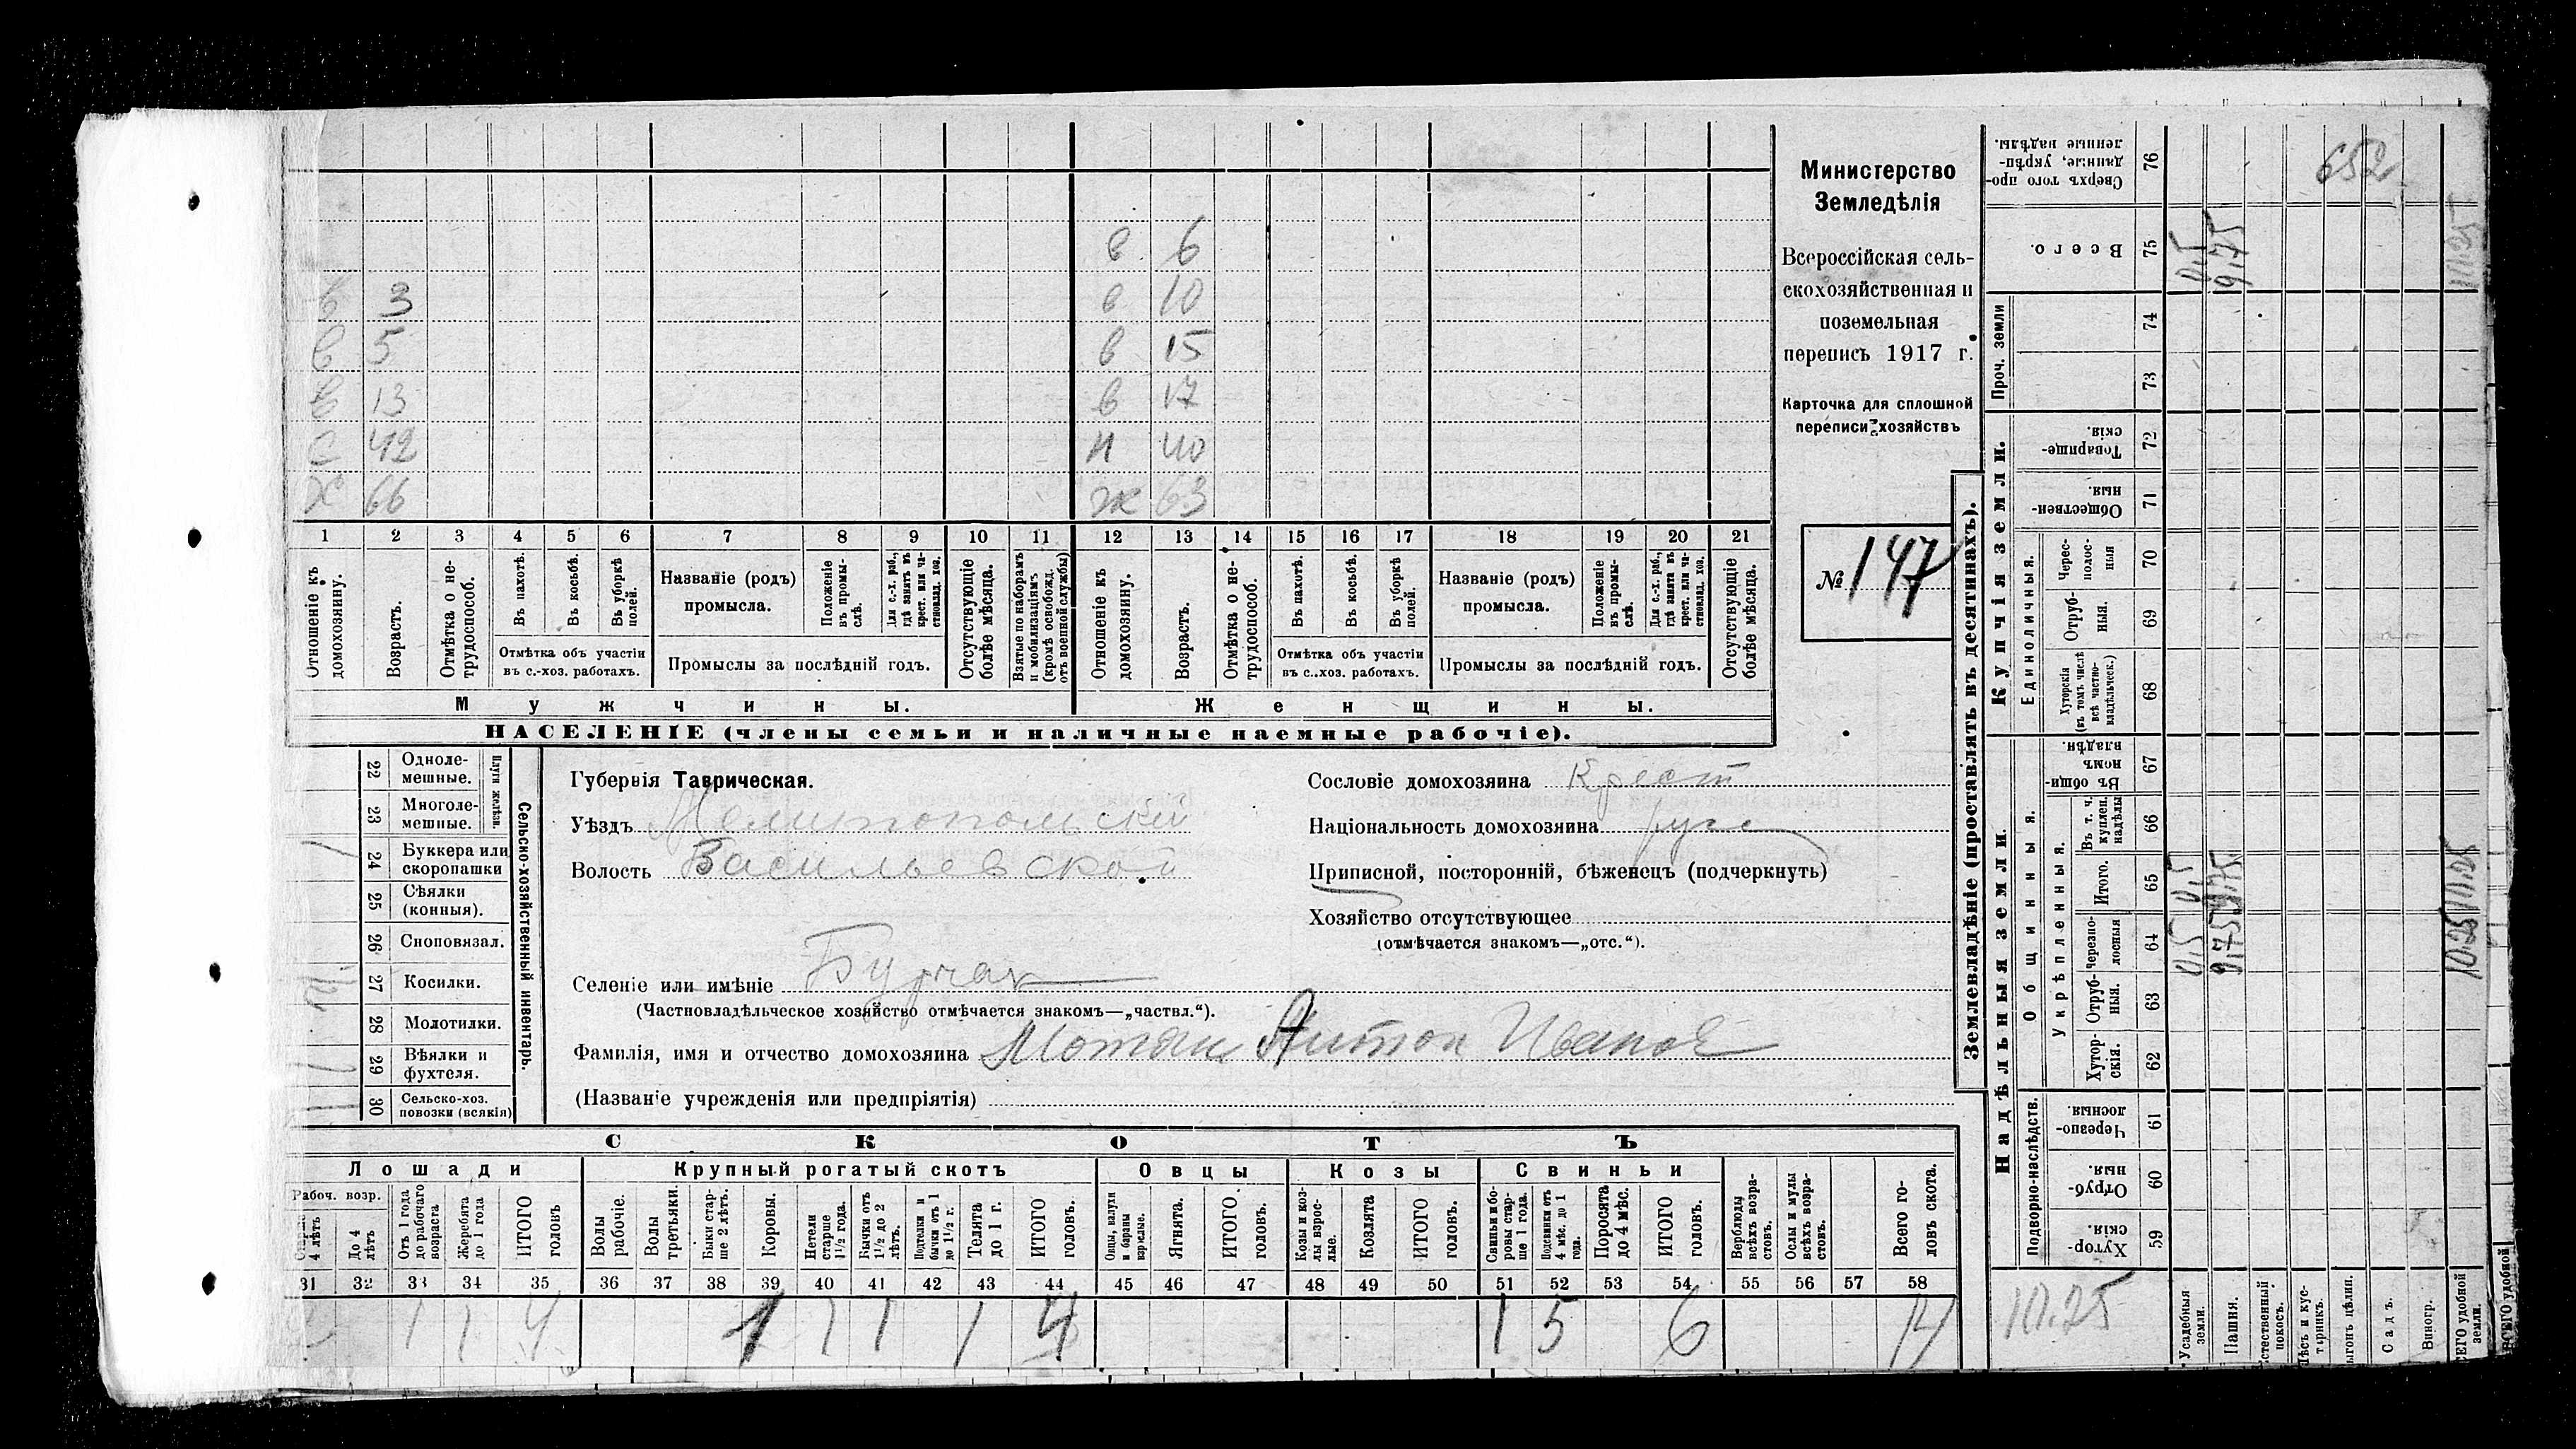 652
в 6
в 3 в 10
в 5 в 15
в 13 в 17
с 42 н 40
х 66 ж 63
1 2 3 4 5 6 7 8 9 10 11 12 13 14 15 16 17 18 19 20 21
Отношеніе къ домохозяину.
Возрастъ.
Отмѣтка о не-
трудоспособ.
Въ пахотѣ.
Въ косьбѣ.
Въ уборкѣ полей.
Отмѣтка объ участіи
въ с.-хоз. работахъ.
Названіе (родъ)
промысла.
Положеніе въ промы-
слѣ.
Для с.-х. раб., гдѣ занятъ въ крест. или ча-
стновлад. хоз.
Промыслы за послѣдній годъ.
Отсутствующіе
болѣе мѣсяца.
Взятые по наборамъ
и мобилизаціямъ
(кромѣ освобожд.
отъ военной службы)
Отношеніе къ
домохозяину.
Возрастъ.
Отмѣтка о не-
трудоспособ.
Въ пахотѣ.
Въ косьбѣ.
Въ уборкѣ полей.
Отмѣтка объ участіи
въ с.-хоз. работахъ.
Названіе (родъ)
промысла.
Положеніе въ промы-
слѣ.
Для с.-х. раб., гдѣ занятъ въ крест. или ча-
стновлад. хоз.
Промыслы за послѣдній годъ.
Отсутствующіе
болѣе мѣсяца.
Мужчины. Женщины.
НАСЕЛЕНІЕ (члены семьи и наличные наемные рабочіе).
Министерство
Земледѣлія
Всероссійская сель-
скохозяйственная и
поземельная
перепись 1917 г.
Карточка для сплошной
переписи хозяйствъ
№ 147
22 Одноле-
мешные.
23 Многоле-
мешные.
Плуги желѣзн.
24 Буккера или
скоропашки
25 Сѣялки
(конныя).
26 Сноповязал.
27 Косилки.
28 Молотилки.
29 Вѣялки и
фухтеля.
30 Сельско-хоз.
повозки (всякія)
Сельско-хозяйственный инвентарь.
Губернія Таврическая.
Уѣздъ Мелитопольскій
Волость Васильевской
Селеніе или имѣніе Бурчак
(Частновладѣльческое хозяйство отмѣчается знакомъ—„частвл.“).
Фамилія, имя и отчество домохозяина Мотян Антон Иванов
(Названіе учрежденія или предпріятія)
Сословіе домохозяина Крест
Національность домохозяина русс
Приписной, посторонній, бѣженецъ (подчеркнуть)
Хозяйство отсутствующее
(отмѣчается знакомъ—„отс.“).
СКОТЪ
Лошади Крупный рогатый скотъ Овцы Козы Свиньи
Рабоч. возр.
4 лѣтъ
До 4
лѣтъ
Отъ 1 года
до рабочаго
возраста
Жеребята
до 1 года
ИТОГО
головъ
Волы
рабочіе.
Волы
третьяки.
Быки стар-
ше 2 лѣтъ.
Коровы.
Нетели
старше
1½ года.
Бычки отъ
1½ до 2
лѣтъ.
Подтелки и
бычки отъ 1
до 1½ г.
Телята
до 1 г.
ИТОГО
головъ.
Овцы, валухи
и бараны
взрослые.
Ягнята.
ИТОГО
головъ.
Козы и коз-
лы взрос-
лые.
Козлята
ИТОГО
головъ.
Свиньи и бо-
ровы стар-
ше 1 года.
Подсвинки отъ
4 мѣс. до 1
года.
Поросята
до 4 мѣс.
ИТОГО
головъ.
Верблюды
всѣхъ возра-
стовъ.
Ослы и мулы
всѣхъ возра-
стовъ.
Всего го-
ловъ скота.
31 32 33 34 35 36 37 38 39 40 41 42 43 44 45 46 47 48 49 50 51 52 53 54 55 56 57 58
2 1 1 4 1 1 1 1 4 1 5 6 14
Землевладѣніе (проставлять въ десятинахъ).
Надѣльныя земли. Купчія земли.
Подворно-наслѣдств.
Общинныя.
Укрѣпленныя.
Единоличныя.
Проч. земли
Хутор-
скія. 59
Отруб-
ныя. 60
Черезпо-
лосныя. 61
Хутор-
скія. 62
Отруб-
ныя. 63
Черезпо-
лосныя 64
Итого. 65
Въ т. ч.
куплен.
надѣлы 66
Въ общин-
номъ
владѣн. 67
Хуторскія
(въ томъ числѣ
всѣ частно-
владѣльческ.) 68
Отруб-
ныя. 69
Черес-
полос-
ныя 70
Обществен-
ныя. 71
Товарище-
скія. 72
73
74
Всего. 75
Сверхъ того про-
данные, укрѣп-
ленные надѣлы. 76
Усадебныя
земли.
Пашня.
Естественный
покосъ.
Лѣсъ и кус-
тарникъ.
Выгонъ цѣлин.
Садъ.
Виногр.
ВСЕГО удобной
земли.
ВСЕГО удобной
10.25
0,5 0,5 0,5
9,75 9,75 9,75
10.25